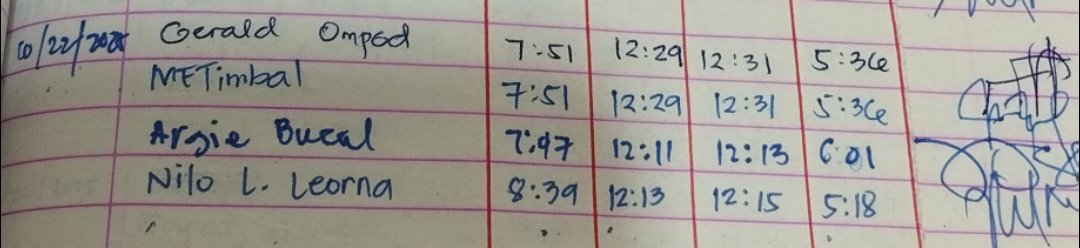 10/22/2025 Gerald Omped 7:51 12:29 12:31 5:36
METimbal 7:51 12:29 12:31 5:36
Argie Bucal 7:47 12:11 12:13 6:01
Nilo L. Leorna 8:39 12:13 12:15 5:18